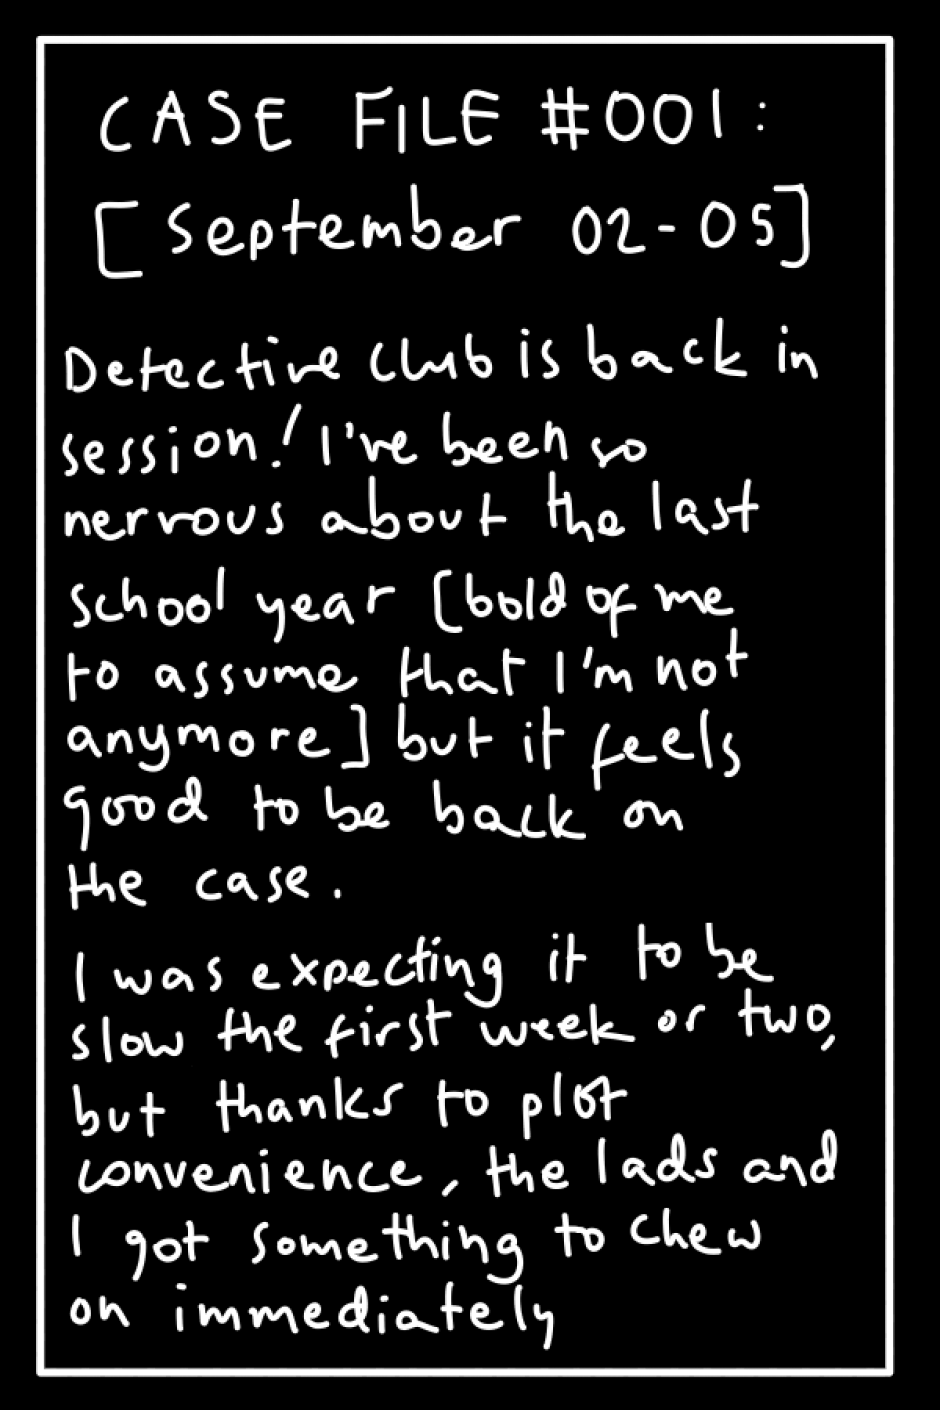 CASE FILE #001:
[September 02-05]
Detective club is back in
session! I've been so
nervous about the last
school year [bold of me
to assume that I'm not
anymore] but it feels
good to be back on
the case.
I was expecting it to be
slow the first week or two,
but thanks to plot
convenience, the lads and
I got something to chew
on immediately